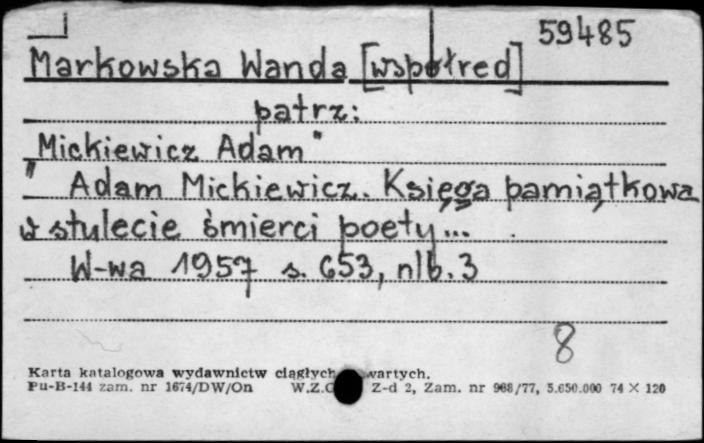 59485
Markowska Wanda [współred]
patrz:
"Mickiewicz Adam"
Adam Mickiewicz. Księga pamiątkowa
w stulecie śmierci poety...
W-wa 1957 s. 653, nlb. 3
8
Karta katalogowa wydawnictw ciągłych wartych.
Pu-B-144 zam. nr 1674/DW/On W.Z.G Z-d 2, Zam. nr 968/77, 5.650.000 74 X 120